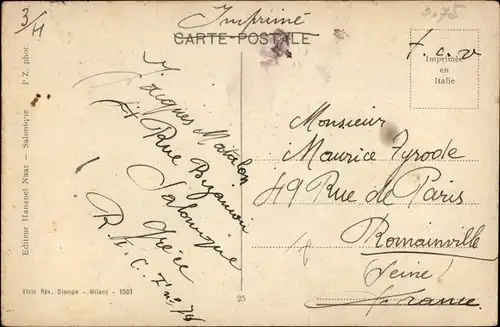 3/4
Imprimé
CARTE-POSTALE
2.75
T. c. v
Imprimée
en
Italie
Jacques Matalon
4 Rue Bizannion
Salonique
Grèce
R. h. C. F
Monsieur
Maurice Tyrode
49 Rue de Paris
Romainville
(Seine)
France
Editeur Hananel Naar — Salonique P.Z. phot.
Visto Rev. Stampa - Milano - 1351
25